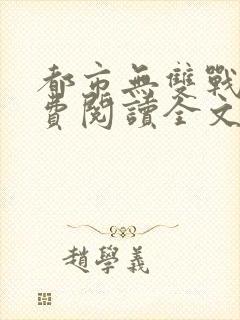 都市無雙戰
費閱讀全文
趙學義